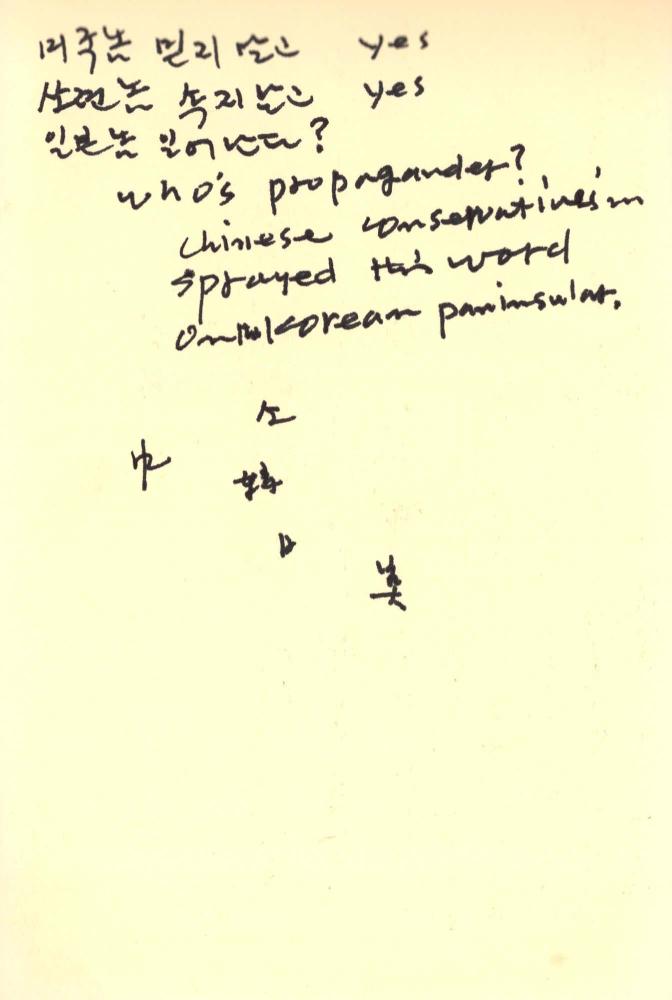 미국놈 믿지 말고 yes
쏘련놈 속지 말고 yes
일본놈 일어난다?
who's propagander?
chinese conservatives'm
sprayed this word
on the korean paninsular.
소
中 韓
日
美